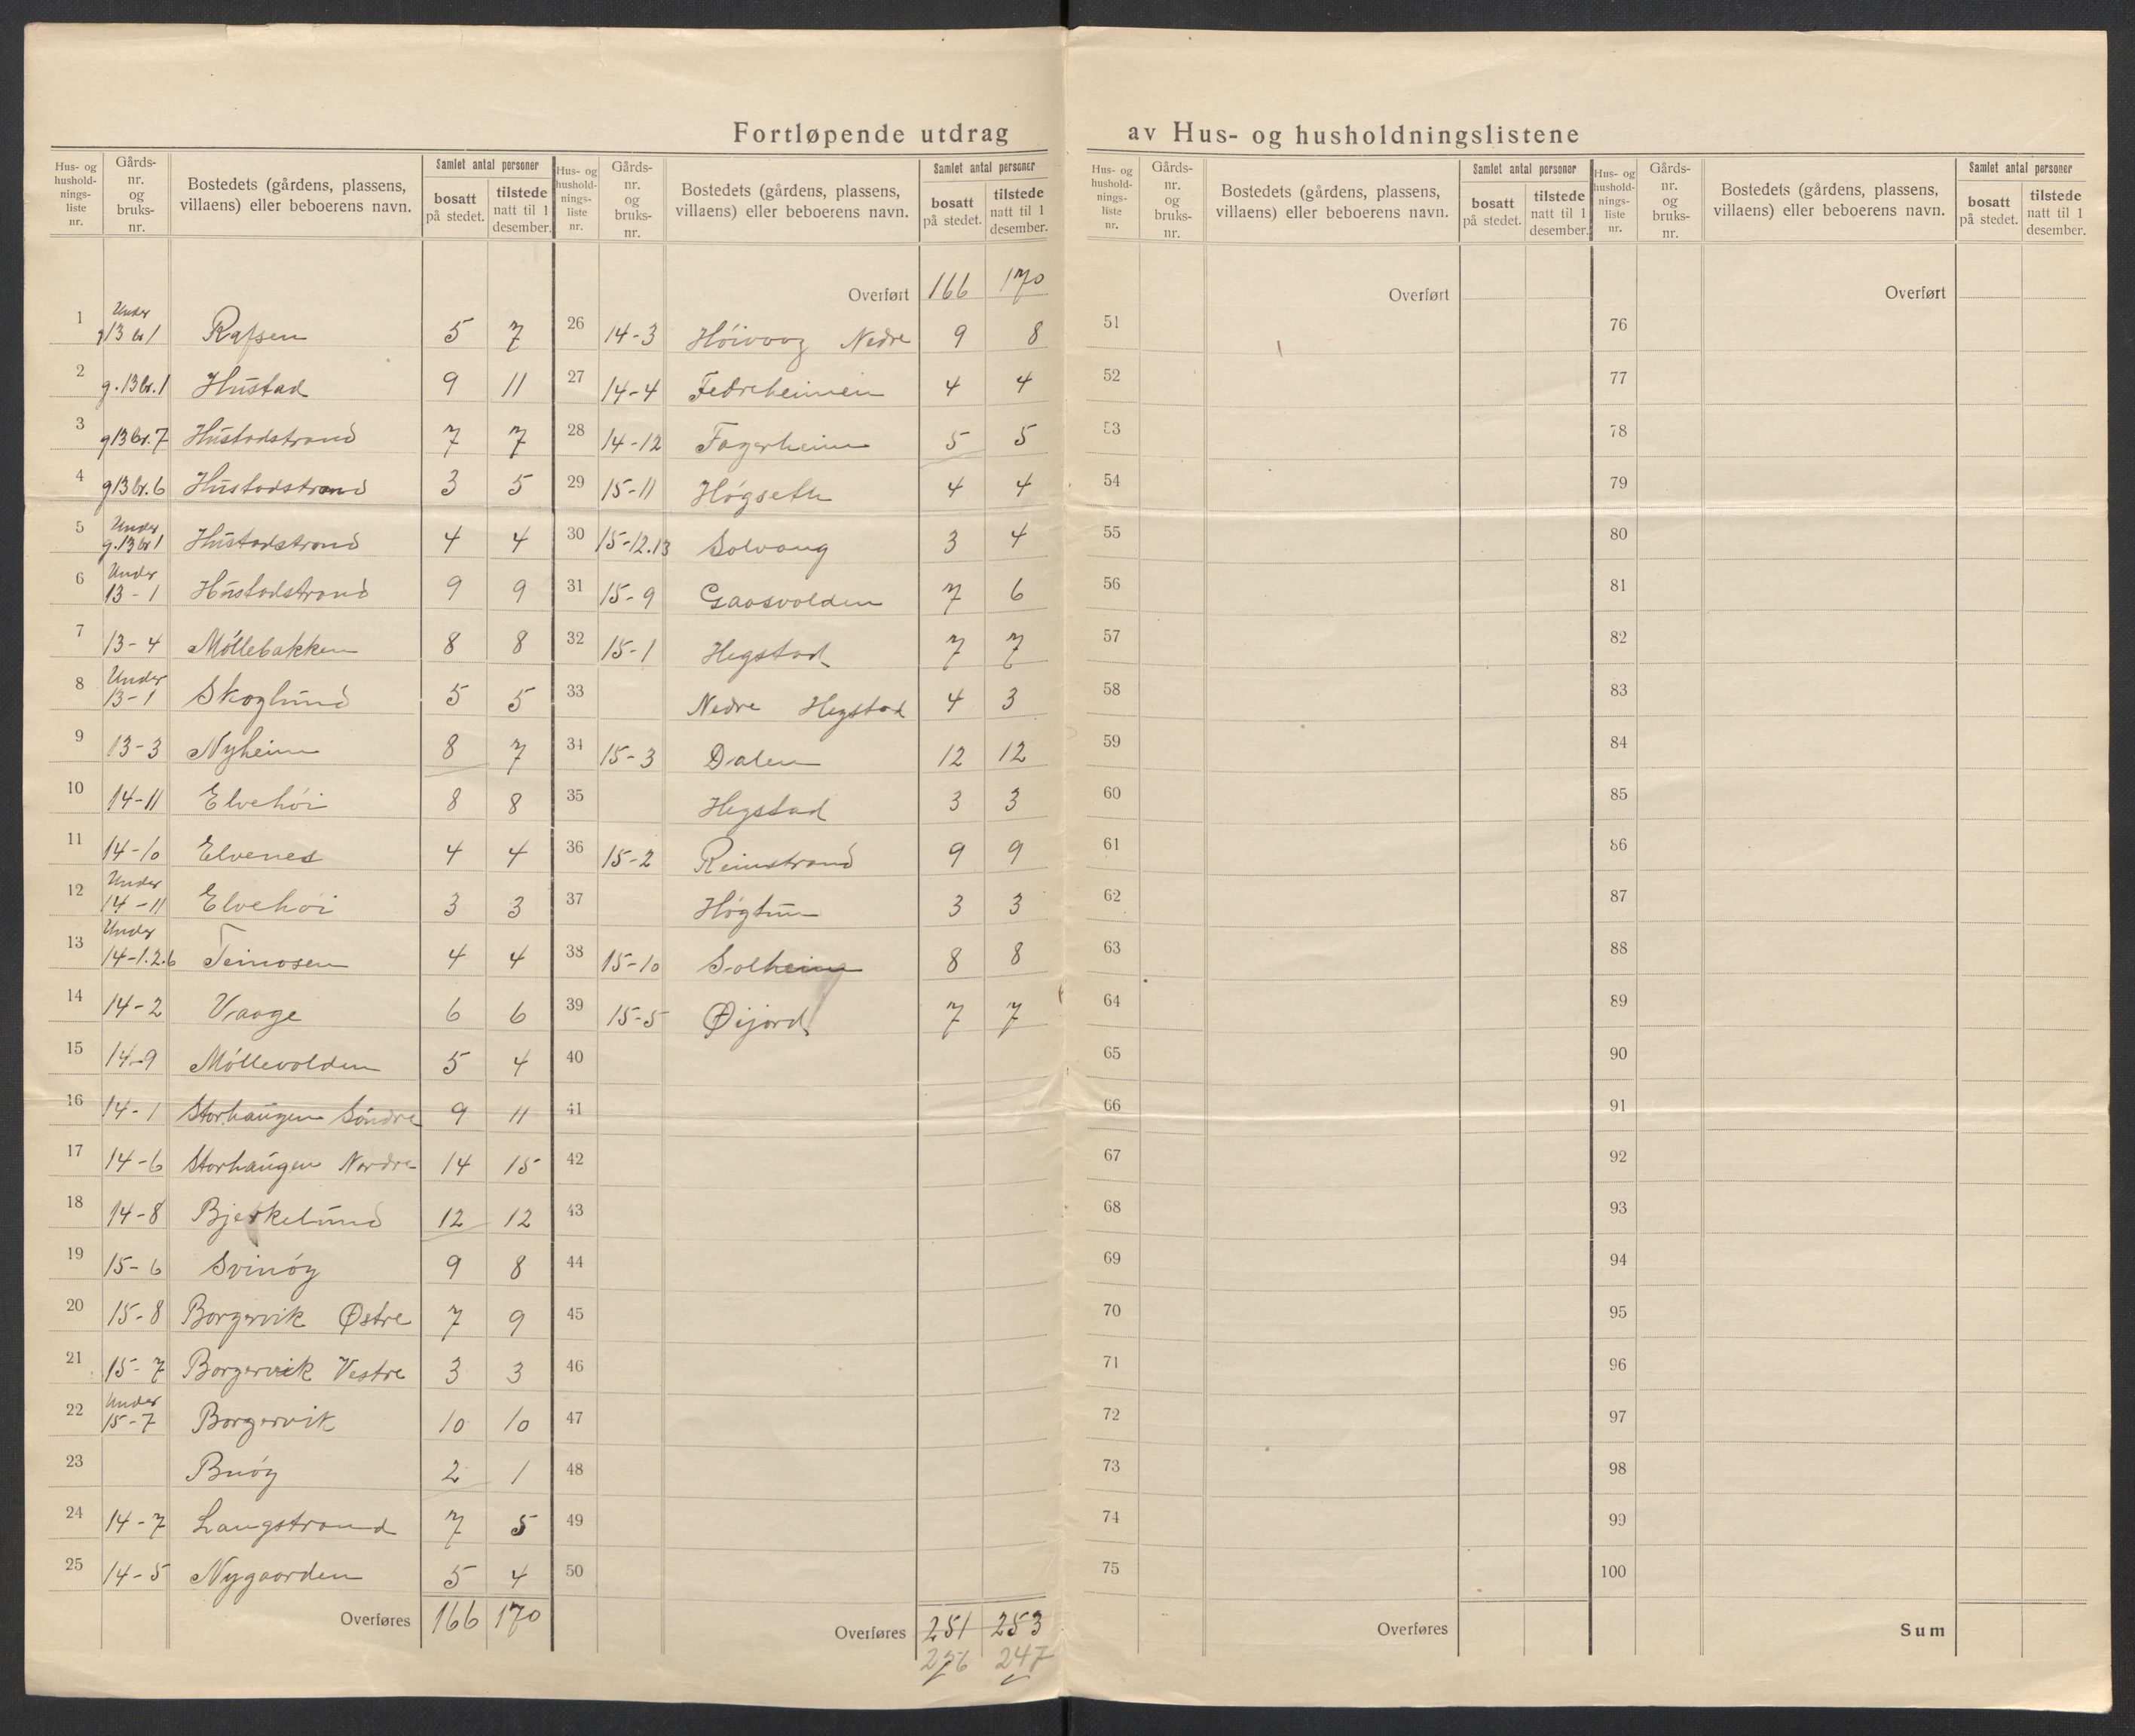 Fortløpende utdrag av Hus- og husholdningslistene
Hus- og hushold- nings- liste nr. Gårds- nr. og bruks- nr. Bostedets (gårdens, plassens, villaens) eller beboerens navn. Samlet antal personer bosatt på stedet. tilstede natt til 1 desember.
1 Under g13 br1 Rafsen 5 7
2 g.13 br.1 Hustad 9 11
3 g13 br.7 Hustadstrand 7 7
4 g13 br.6 Hustadstrand 3 5
5 Under g.13 br1 Hustadstrand 4 4
6 Under 13-1 Hustadstrand 9 9
7 13-4 Möllebakken 8 8
8 Under 13-1 Skoglund 5 5
9 13-3 Nyheim 8 7
10 14-11 Elvehöi 8 8
11 14-10 Elvenes 4 4
12 Under 14-11 Elvehöi 3 3
13 Under 14-1.2.6 Teinosen 4 4
14 14-2 Vaage 6 6
15 14-9 Möllevolden 5 4
16 14-1 Storhaugen Söndre 9 11
17 14-6 Storhaugen Nordre 14 15
18 14-8 Bjerkelund 12 12
19 15-6 Svinöy 9 8
20 15-8 Borgervik Østre 7 9
21 15-7 Borgervik Vestre 3 3
22 Under 15-7 Borgervik 10 10
23 Buöy 2 1
24 14-7 Langstrand 7 5
25 14-5 Nygaarden 5 4
Overføres 166 170
Hus- og hushold- nings- liste nr. Gårds- nr. og bruks- nr. Bostedets (gårdens, plassens, villaens) eller beboerens navn. Samlet antal personer bosatt på stedet. tilstede natt til 1 desember.
Overført 166 170
26 14-3 Höivaag Nedre 9 8
27 14-4 Fedreheimen 4 4
28 14-12 Fagerheim 5 5
29 15-11 Högseth 4 4
30 15-12.13 Solvang 3 4
31 15-9 Gaasvolden 7 6
32 15-1 Hegstad 7 7
33 Nedre Hegstad 4 3
34 15-3 Dalen 12 12
35 Hegstad 3 3
36 15-2 Reinstrand 9 9
37 Högtun 3 3
38 15-10 Solheim 8 8
39 15-5 Øijord 7 7
40
41
42
43
44
45
46
47
48
49
50
Overføres 251 253
256 247
Hus- og hushold- nings- liste nr. Gårds- nr. og bruks- nr. Bostedets (gårdens, plassens, villaens) eller beboerens navn. Samlet antal personer bosatt på stedet. tilstede natt til 1 desember.
Overført
51
52
53
54
55
56
57
58
59
60
61
62
63
64
65
66
67
68
69
70
71
72
73
74
75
Overføres
Hus- og hushold- nings- liste nr. Gårds- nr. og bruks- nr. Bostedets (gårdens, plassens, villaens) eller beboerens navn. Samlet antal personer bosatt på stedet. tilstede natt til 1 desember.
Overført
76
77
78
79
80
81
82
83
84
85
86
87
88
89
90
91
92
93
94
95
96
97
98
99
100
Sum